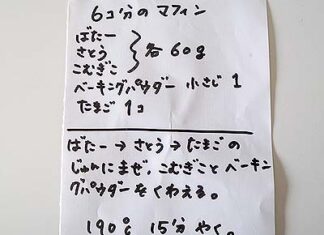 6コ分の マフィン
ばたー
さとう
こむぎこ } 各 60g
ベーキングパウダー 小さじ 1
たまご 1コ
ばたー → さとう → たまごの
じゅんにまぜ、こむぎことベーキン
グパウダーをくわえる。
190℃ 15分 やく。